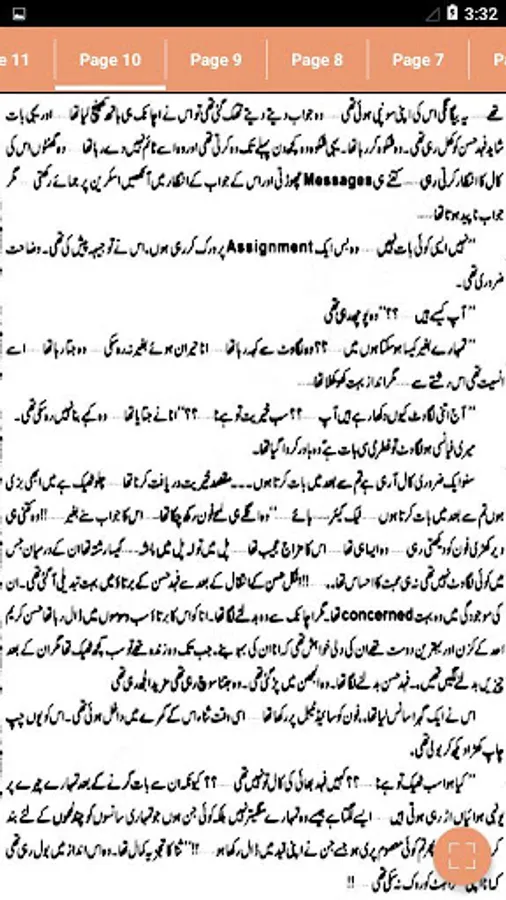 3:32
e 11 Page 10 Page 9 Page 8 Page 7 P
تھے ..... یہ بیگانگی اس کی اپنی سونپی ہوئی تھی ..... وہ جواب دیتے دیتے تھک گئی تھی تو اس نے اچانک ہی ہاتھ کھینچ لیا تھا ..... اور یہی بات
شاید فہد حسن کو کھل رہی تھی۔ وہ شکوہ کر رہا تھا۔ یہی شکوہ وہ کچھ دن پہلے تک وہ کرتی تھی اور وہ اسے ٹائم نہیں دے رہا تھا ..... وہ گھنٹوں اس کی
کال کا انتظار کرتی رہی ..... کتنے ہی Messages چھوڑتی اور اس کے جواب کے انتظار میں آنکھیں اسکرین پر جمائے رکھتی ..... مگر
جواب ناپید ہوتا تھا.....
”نہیں ایسی کوئی بات نہیں ..... وہ بس ایک Assignment پر ورک کر رہی ہوں۔ اس نے توجیہہ پیش کی تھی۔ وضاحت
ضروری تھی۔
”آپ کیسے ہیں ..... ؟؟“ وہ پوچھ رہی تھی
”تمہارے بغیر کیسا ہو سکتا ہوں میں ..... ؟؟ وہ لگاوٹ سے کہہ رہا تھا ..... انا حیران ہوئے بغیر نہ رہ سکی ..... وہ جتا رہا تھا ..... اسے
انسیت تھی اس رشتے سے ..... مگر انداز بہت کھوکھلا تھا.....
”آج اتنی لگاوٹ کیوں دکھا رہے ہیں آپ ..... ؟؟ سب خیریت تو ہے نا ..... ؟؟“ انا نے جتایا تھا ..... وہ کہے بنا نہیں رہ سکی تھی۔
میری فیانسی ہو لگاوٹ تو فطری سی بات ہے وہ باور کروا گیا تھا۔
سنو ایک ضروری کال آ رہی ہے تم سے بعد میں بات کرتا ہوں۔۔۔ مقصد خیریت دریافت کرنا تھا ..... چلو ٹھیک ہے میں ابھی بزی
ہوں تم سے بعد میں بات کرتا ہوں ..... ٹیک کیئر ..... بائے ..... “ وہ اگلے ہی لمحے فون رکھ چکا تھا۔ اس کا جواب سنے بغیر ..... !! وہ کتنی ہی
دیر کھڑی فون کو دیکھتی رہی ..... وہ ایسا ہی تھا ..... اس کا مزاج عجیب تھا ..... پل میں تولہ پل میں ماشہ۔ کیسا رشتہ تھا ان کے درمیان جس
میں کوئی لگاوٹ نہیں تھی نہ ہی محبت کا احساس تھا... !!! انکل حسن کے انتقال کے بعد سے فہد حسن کے برتاؤ میں بہت تبدیلی آ گئی تھی۔ ان
کی موجودگی میں وہ بہت concerned تھا۔ مگر اچانک سے وہ بدلنے لگا تھا۔ انا کو اس کا برتاؤ سب وسوسوں میں ڈال رہا تھا حسن کریم
احمد کے کزن اور بہترین دوست تھے ان کی دلی خواہش تھی کہ انا ان کی بہو بنے۔ جب تک وہ زندہ تھے تو سب کچھ ٹھیک تھا مگر ان کے بعد
چیزیں بدلنے لگیں تھیں... فہد حسن بدلنے لگا تھا۔ وہ الجھن میں پڑ گئی تھی۔ وہ جتنا سوچ رہی تھی مزید الجھ رہی تھی
اس نے ایک گہرا سانس لیا تھا۔ فون کو سائیڈ ٹیبل پر رکھا تھا ..... اسی وقت ثناء اس کے کمرے میں داخل ہوئی تھی۔ اس کو یوں چپ
چاپ کھڑا دیکھ کر بولی تھی۔
”کیا ہوا سب ٹھیک تو ہے نا ..... ؟؟ کہیں فہد بھائی کی کال تو نہیں تھی ..... ؟؟ کیونکہ ان سے بات کرنے کے بعد تمہارے چہرے پر
یونہی ہوائیاں اڑ رہی ہوتی ہیں ..... ایسے لگتا ہے جیسے وہ تمہارے منگیتر نہیں بلکہ کوئی جن ہوں جو تمہاری سانسوں کو چند لمحوں کے لئے بند
تم کوئی معصوم پری ہو جسے جن نے اپنی قید میں ڈال رکھا ہو ..... !!“ ثنا کا تجزیہ کمال تھا۔ وہ اس انداز میں بول رہی تھی
کہ انا اپنی کو روک نہ سکی تھی ..... !!